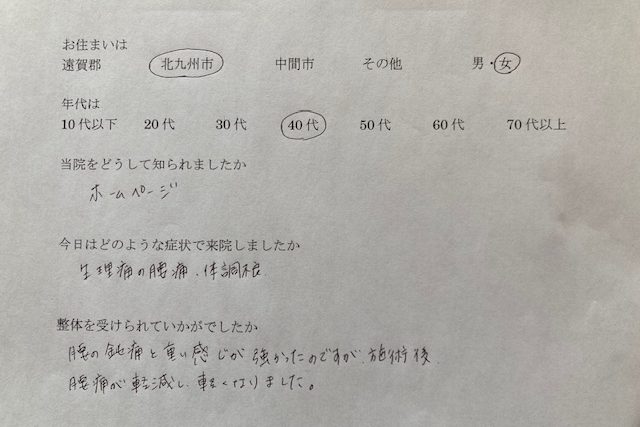 お住まいは
遠賀郡 北九州市 中間市 その他 男・女
年代は
10代以下 20代 30代 40代 50代 60代 70代以上
当院をどうして知られましたか
ホームページ
今日はどのような症状で来院しましたか
生理痛の腰痛、体調不良
整体を受けられていかがでしたか
腰の鈍痛と重い感じが強かったのですが、施術後、
腰痛が軽減し、軽くなりました。